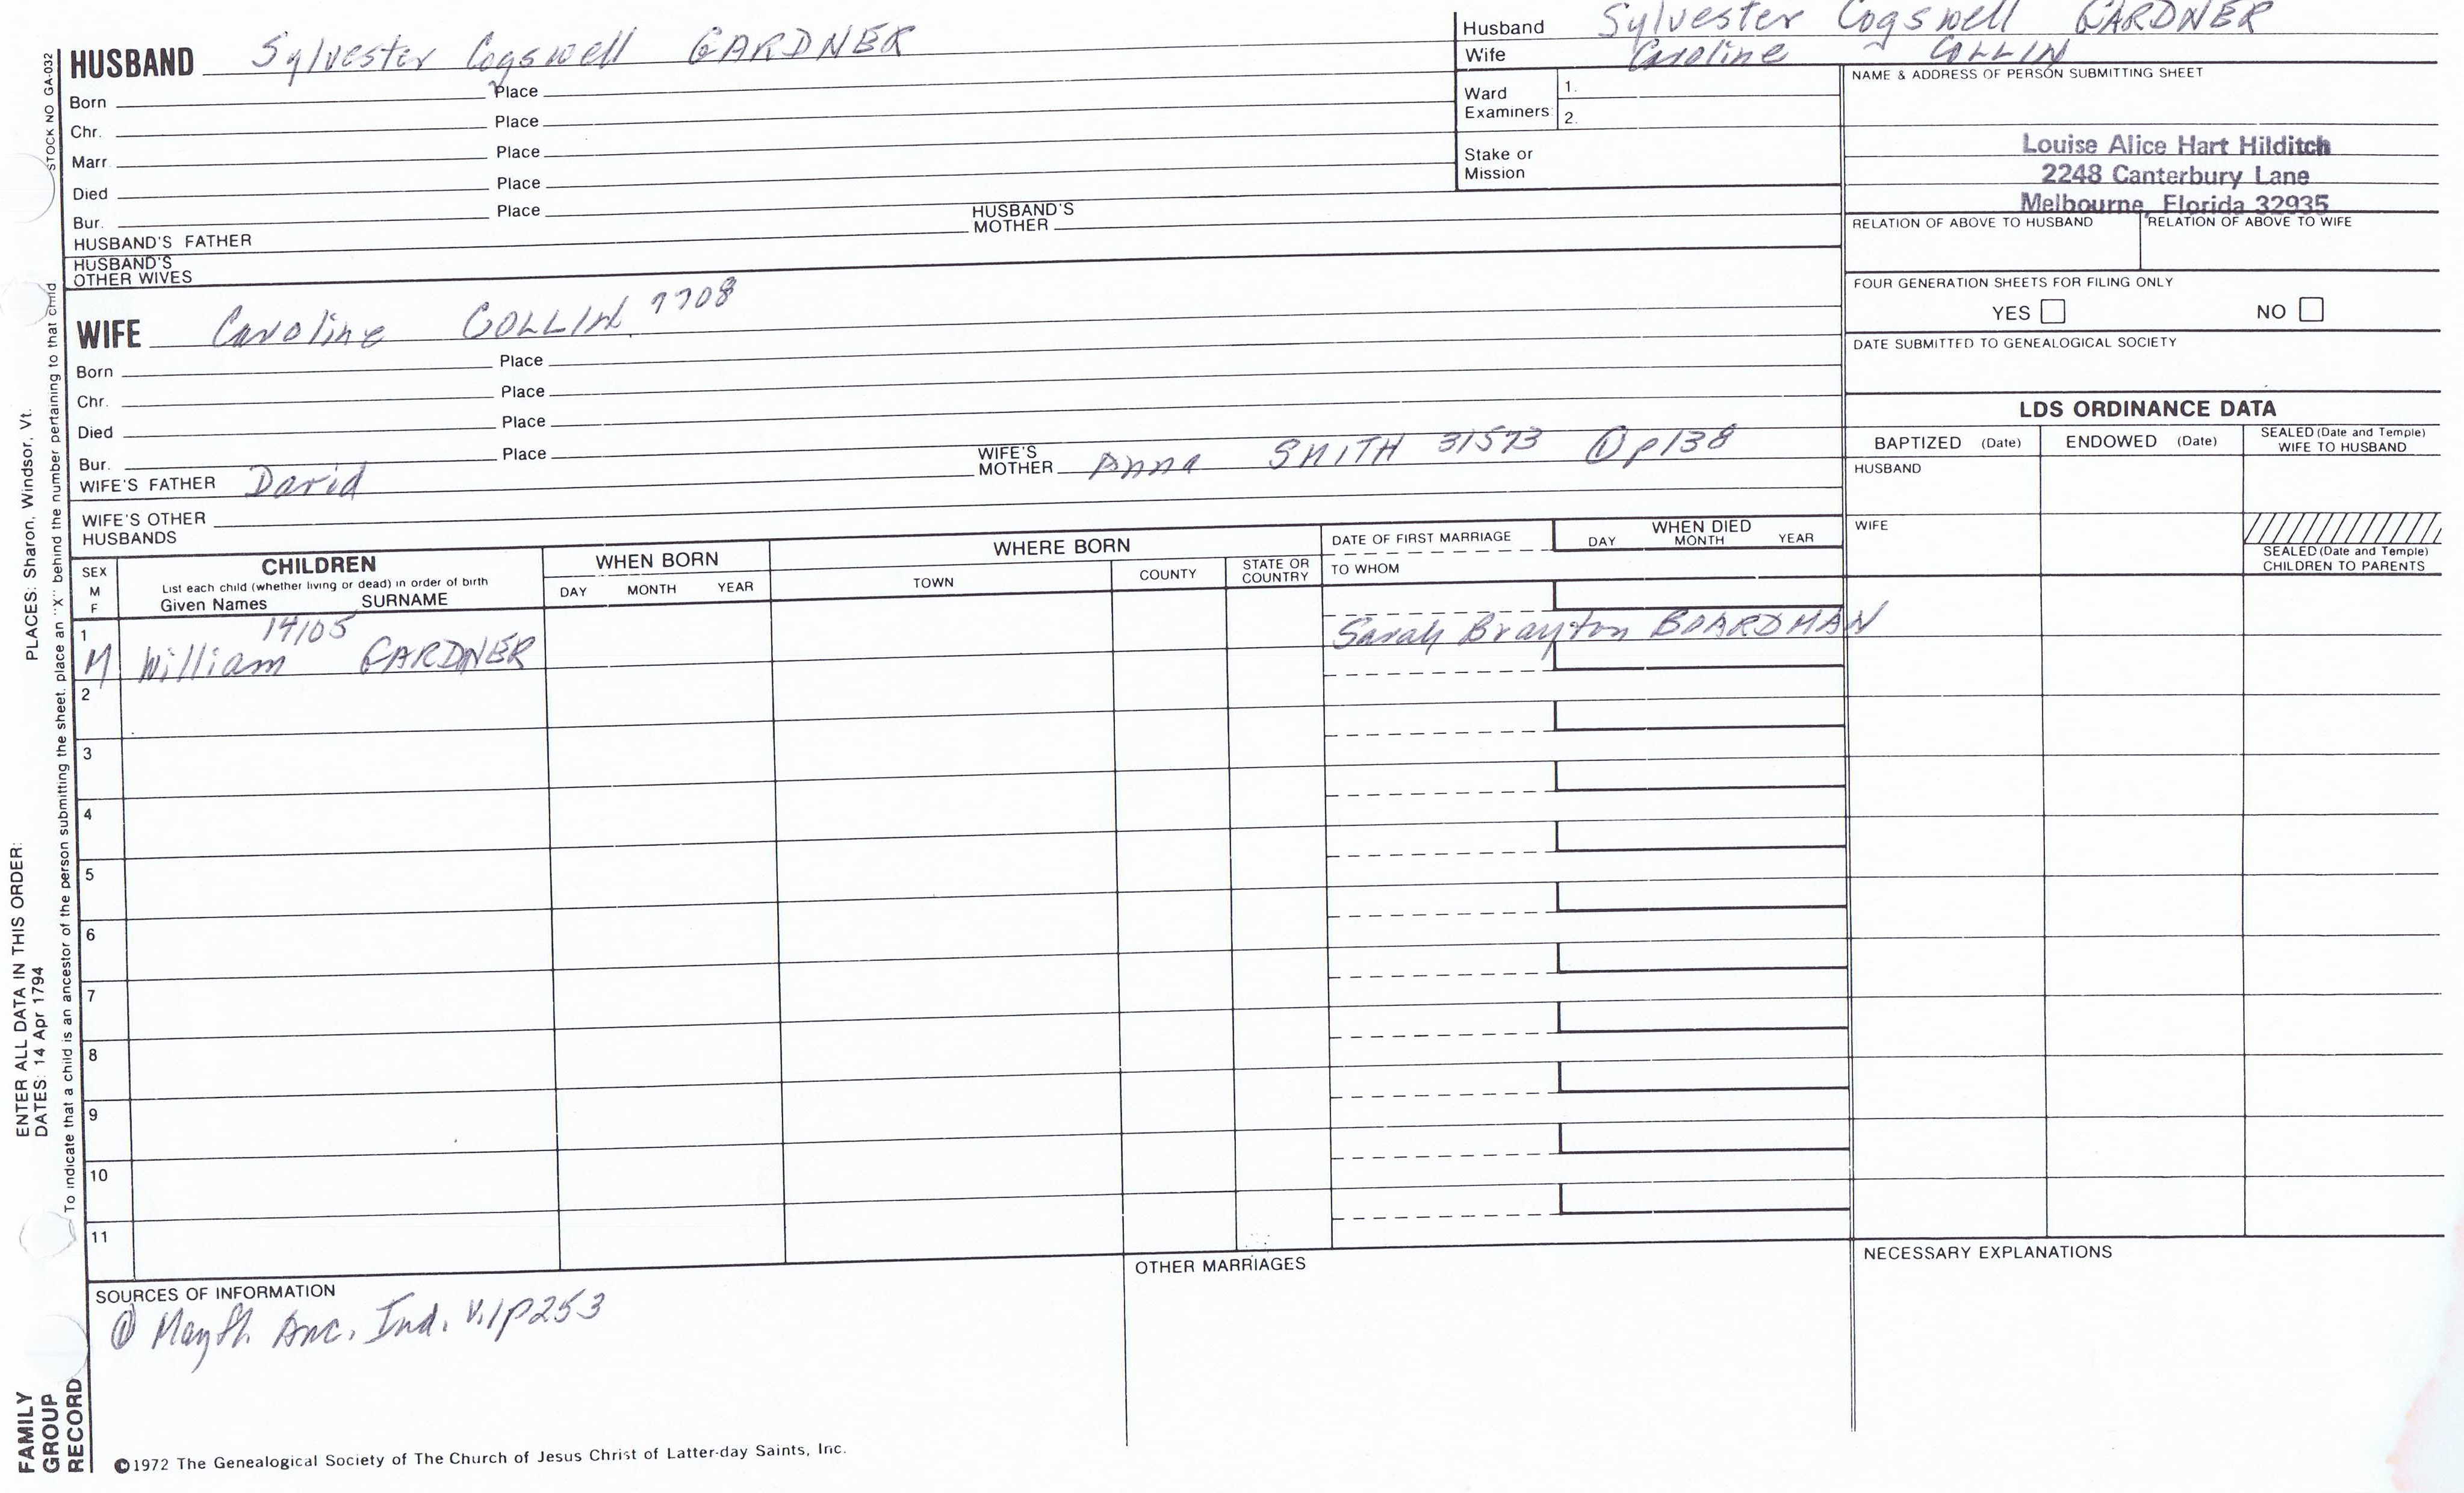 HUSBAND Sylvester Cogswell GARDNER
Born Place
Chr. Place
Marr. Place
Died Place
Bur. Place
HUSBAND'S FATHER HUSBAND'S MOTHER
HUSBAND'S OTHER WIVES
WIFE Caroline COLLIN 7708
Born Place
Chr. Place
Died Place
Bur. Place
WIFE'S FATHER David WIFE'S MOTHER Anna SMITH 31573 ① p138
WIFE'S OTHER HUSBANDS
Husband Sylvester Cogswell GARDNER
Wife Caroline COLLIN
Ward Examiners 1.
2.
Stake or Mission
NAME & ADDRESS OF PERSON SUBMITTING SHEET
Louise Alice Hart Hilditch
2248 Canterbury Lane
Melbourne, Florida 32935
RELATION OF ABOVE TO HUSBAND RELATION OF ABOVE TO WIFE
FOUR GENERATION SHEETS FOR FILING ONLY
YES NO
DATE SUBMITTED TO GENEALOGICAL SOCIETY
LDS ORDINANCE DATA
BAPTIZED (Date) ENDOWED (Date) SEALED (Date and Temple) WIFE TO HUSBAND
HUSBAND
WIFE
SEALED (Date and Temple) CHILDREN TO PARENTS
SEX M F
CHILDREN
List each child (whether living or dead) in order of birth
Given Names SURNAME
WHEN BORN
DAY MONTH YEAR
WHERE BORN
TOWN COUNTY STATE OR COUNTRY
DATE OF FIRST MARRIAGE
TO WHOM
WHEN DIED
DAY MONTH YEAR
14105
1 M William GARDNER Sarah Brayton BOARDMAN
2
3
4
5
6
7
8
9
10
11
SOURCES OF INFORMATION
① Mayfl. Anc. Ind. V.1p253
OTHER MARRIAGES
NECESSARY EXPLANATIONS
©1972 The Genealogical Society of The Church of Jesus Christ of Latter-day Saints, Inc.
STOCK NO GA-032
To indicate that a child is an ancestor of the person submitting the sheet, place an "X" behind the number pertaining to that child
PLACES: Sharon, Windsor, Vt.
ENTER ALL DATA IN THIS ORDER:
DATES: 14 Apr 1794
FAMILY
GROUP
RECORD